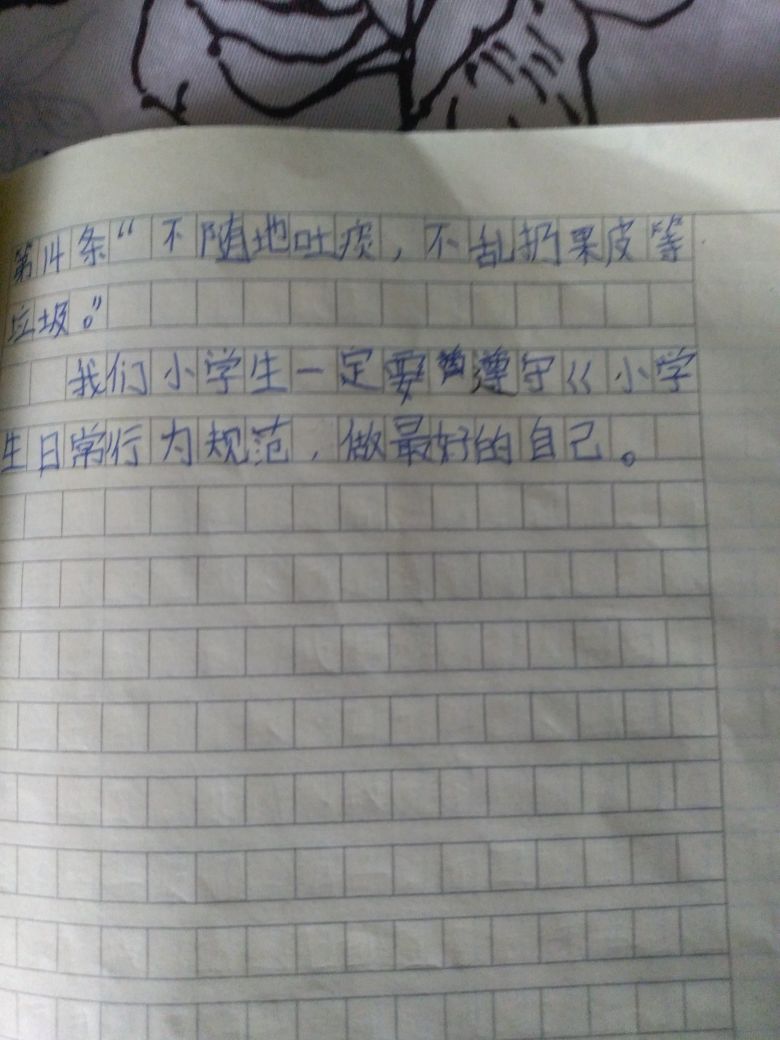 第14条“不随地吐痰，不乱扔果皮等
垃圾。”
我们小学生一定要遵守《小学
生日常行为规范，做最好的自己。